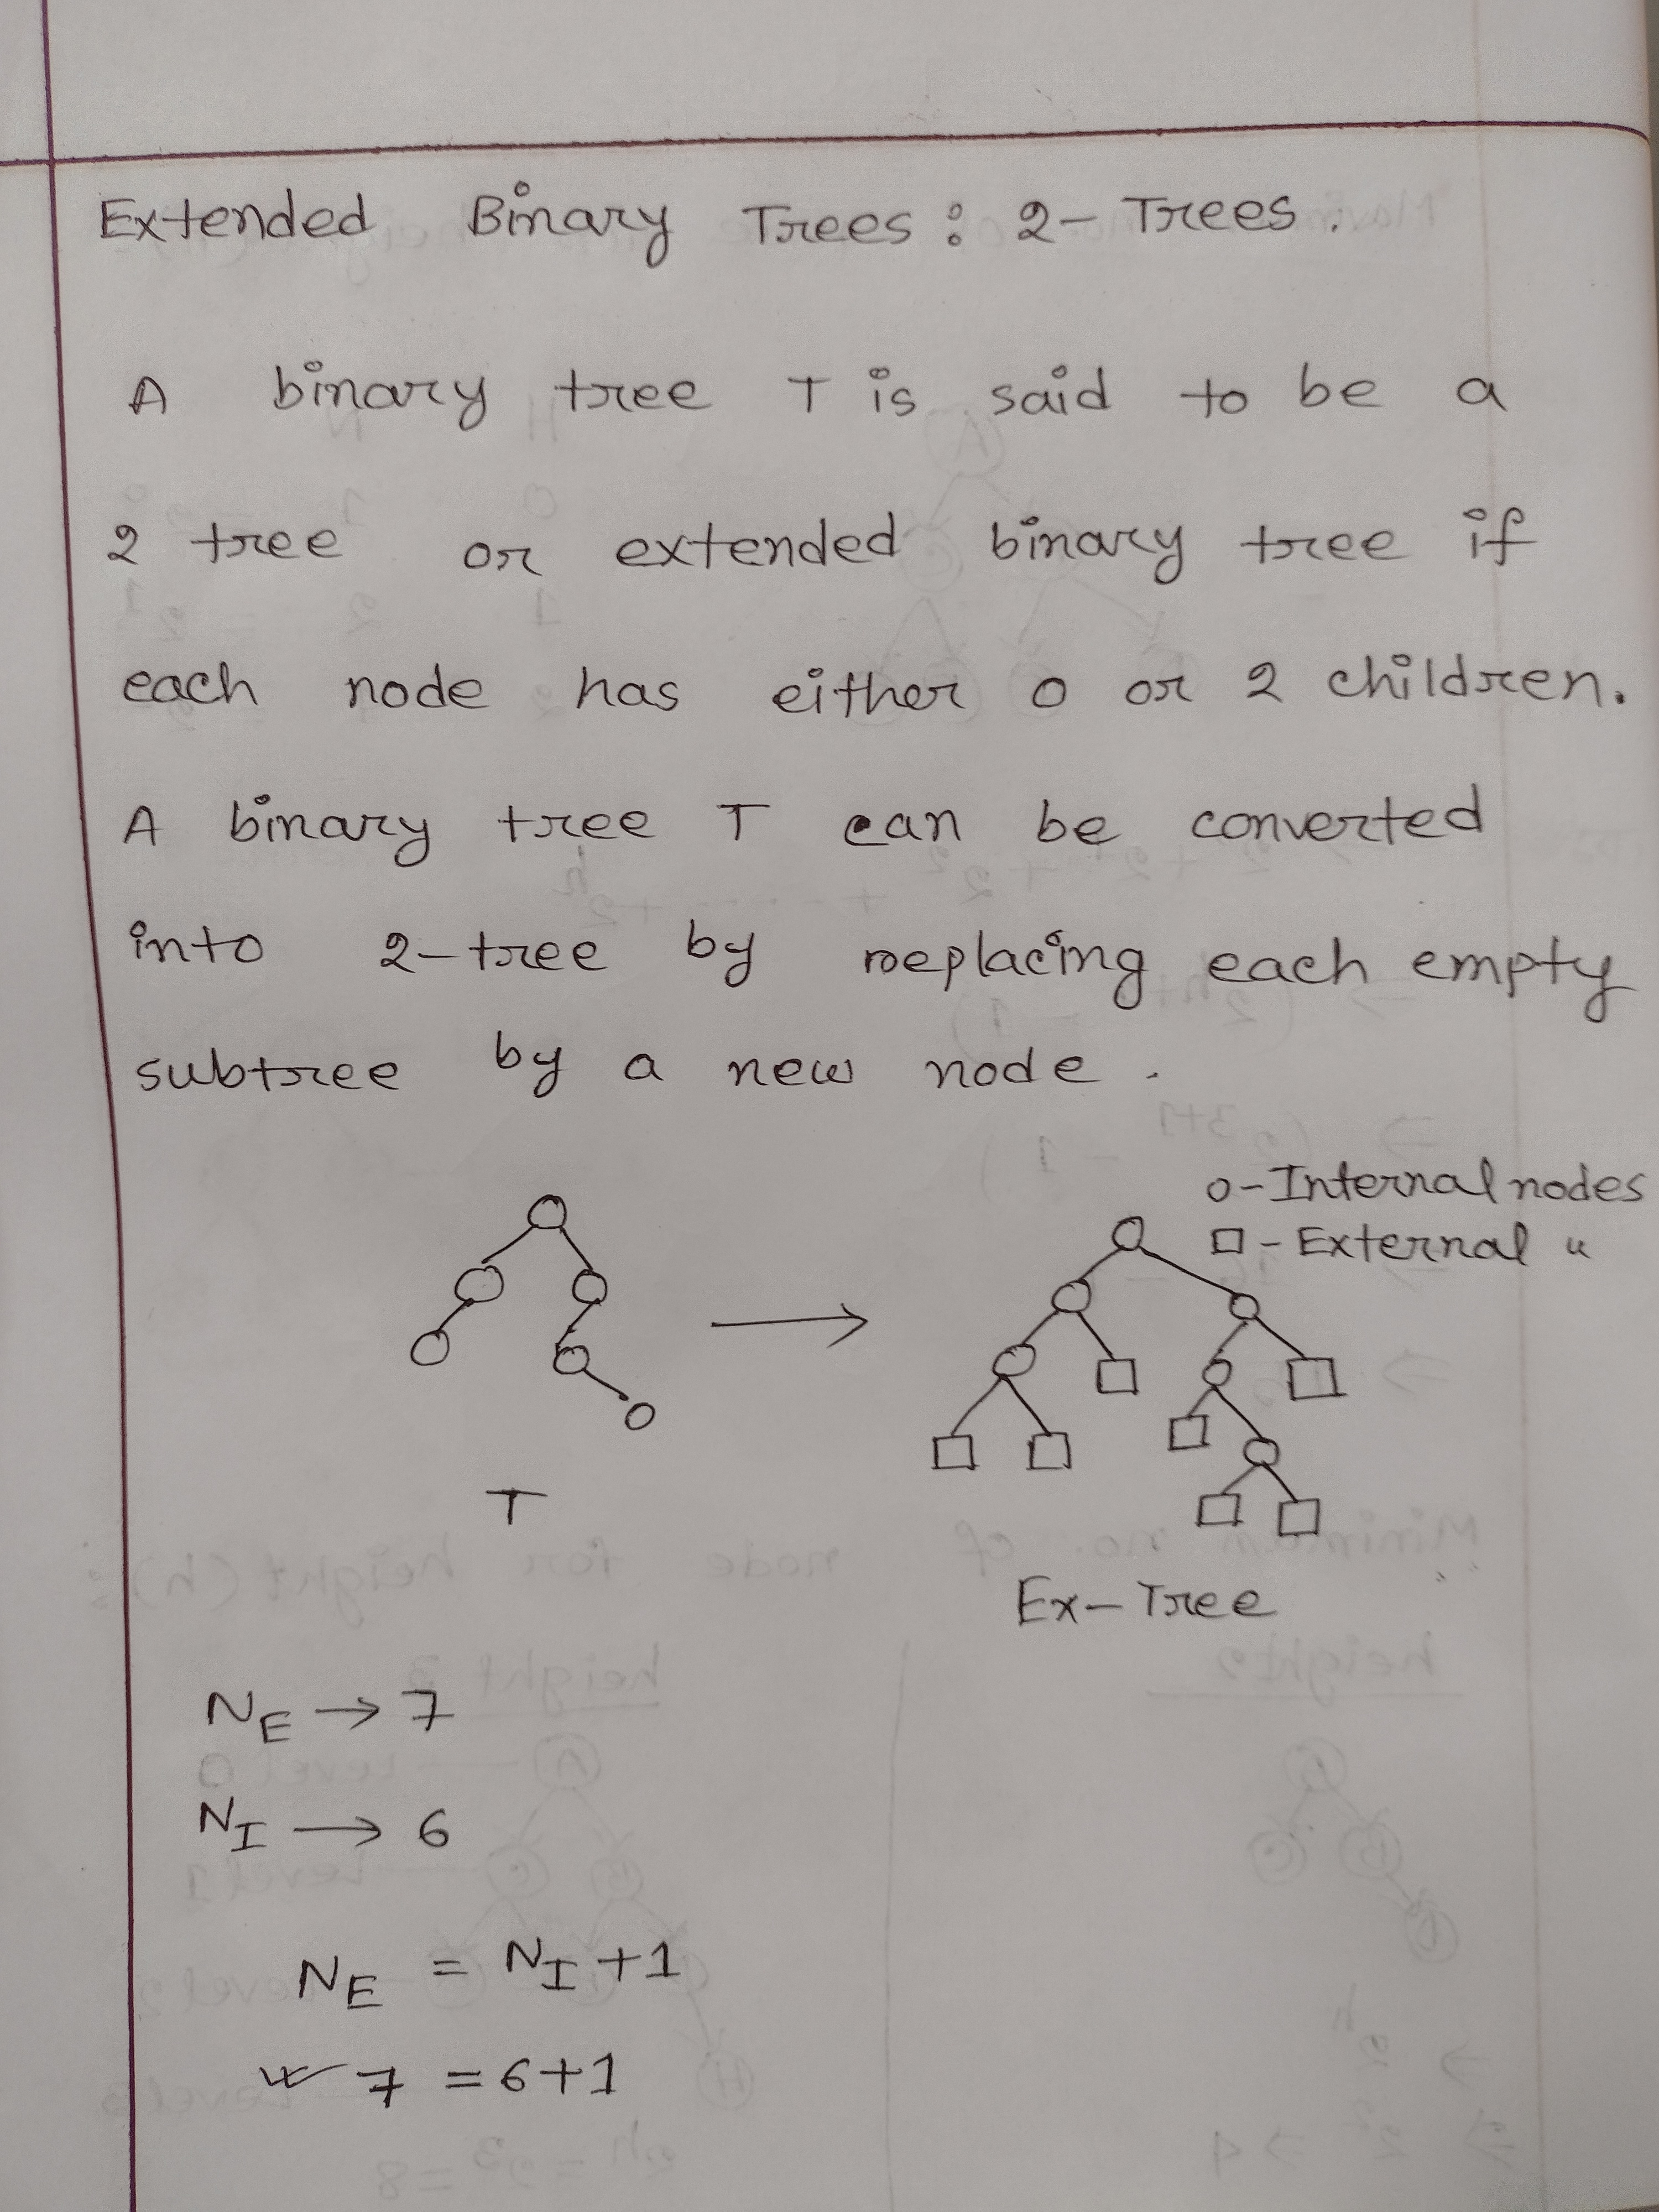 Extended Binary Trees : 2- Trees.
A binary tree T is said to be a
2 tree or extended binary tree if
each node has either 0 or 2 children.
A binary tree T can be converted
into 2-tree by replacing each empty
subtree by a new node.
o - Internal nodes
□ - External "
T
Ex- Tree
N_E → 7
N_I → 6
N_E = N_I + 1
7 = 6+1